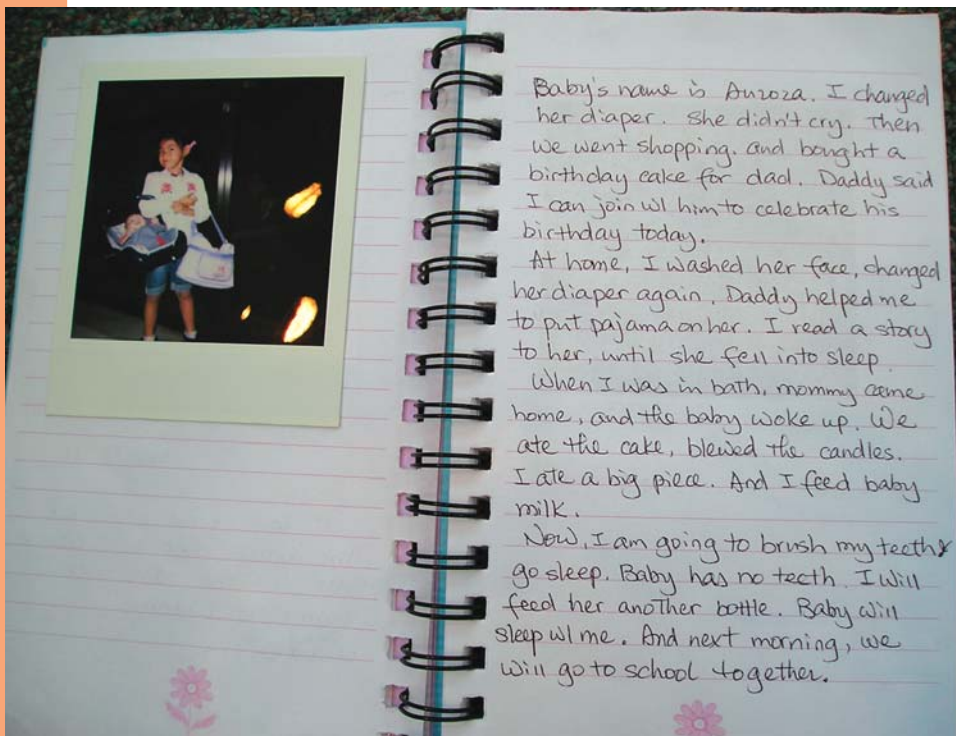 Baby's name is Auroza. I changed
her diaper. She didn't cry. Then
we went shopping. and bought a
birthday cake for dad. Daddy said
I can join w/ him to celebrate his
birthday today.
At home, I washed her face, changed
her diaper again. Daddy helped me
to put pajama on her. I read a story
to her, until she fell into sleep.
When I was in bath, mommy came
home, and the baby woke up. We
ate the cake, blewed the candles.
I ate a big piece. And I feed baby
milk.
Now, I am going to brush my teeth &
go sleep. Baby has no teeth. I will
feed her another bottle. Baby will
sleep w/ me. And next morning, we
will go to school together.